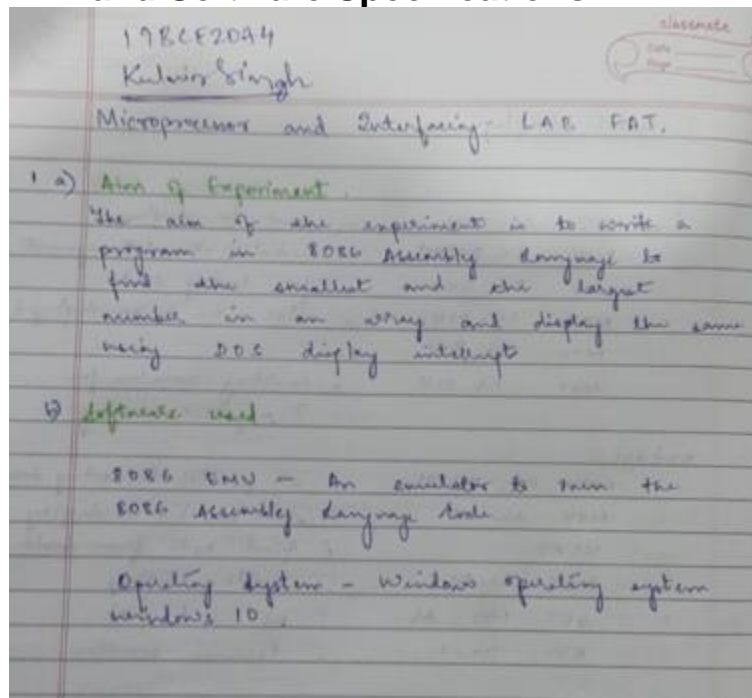 and Software Specifications
classmate
Date
Page
19BCE2074
Kulvir Singh
Microprocessor and Interfacing - LAB FAT.
1 a) Aim of Experiment.
The aim of the experiment is to write a
program in 8086 Assembly Language to
find the smallest and the largest
number in an array and display the same
using DOS display interrupt
b) Software used
8086 EMU - An emulator to run the
8086 Assembly Language Code
Operating System - Windows operating system
windows 10.